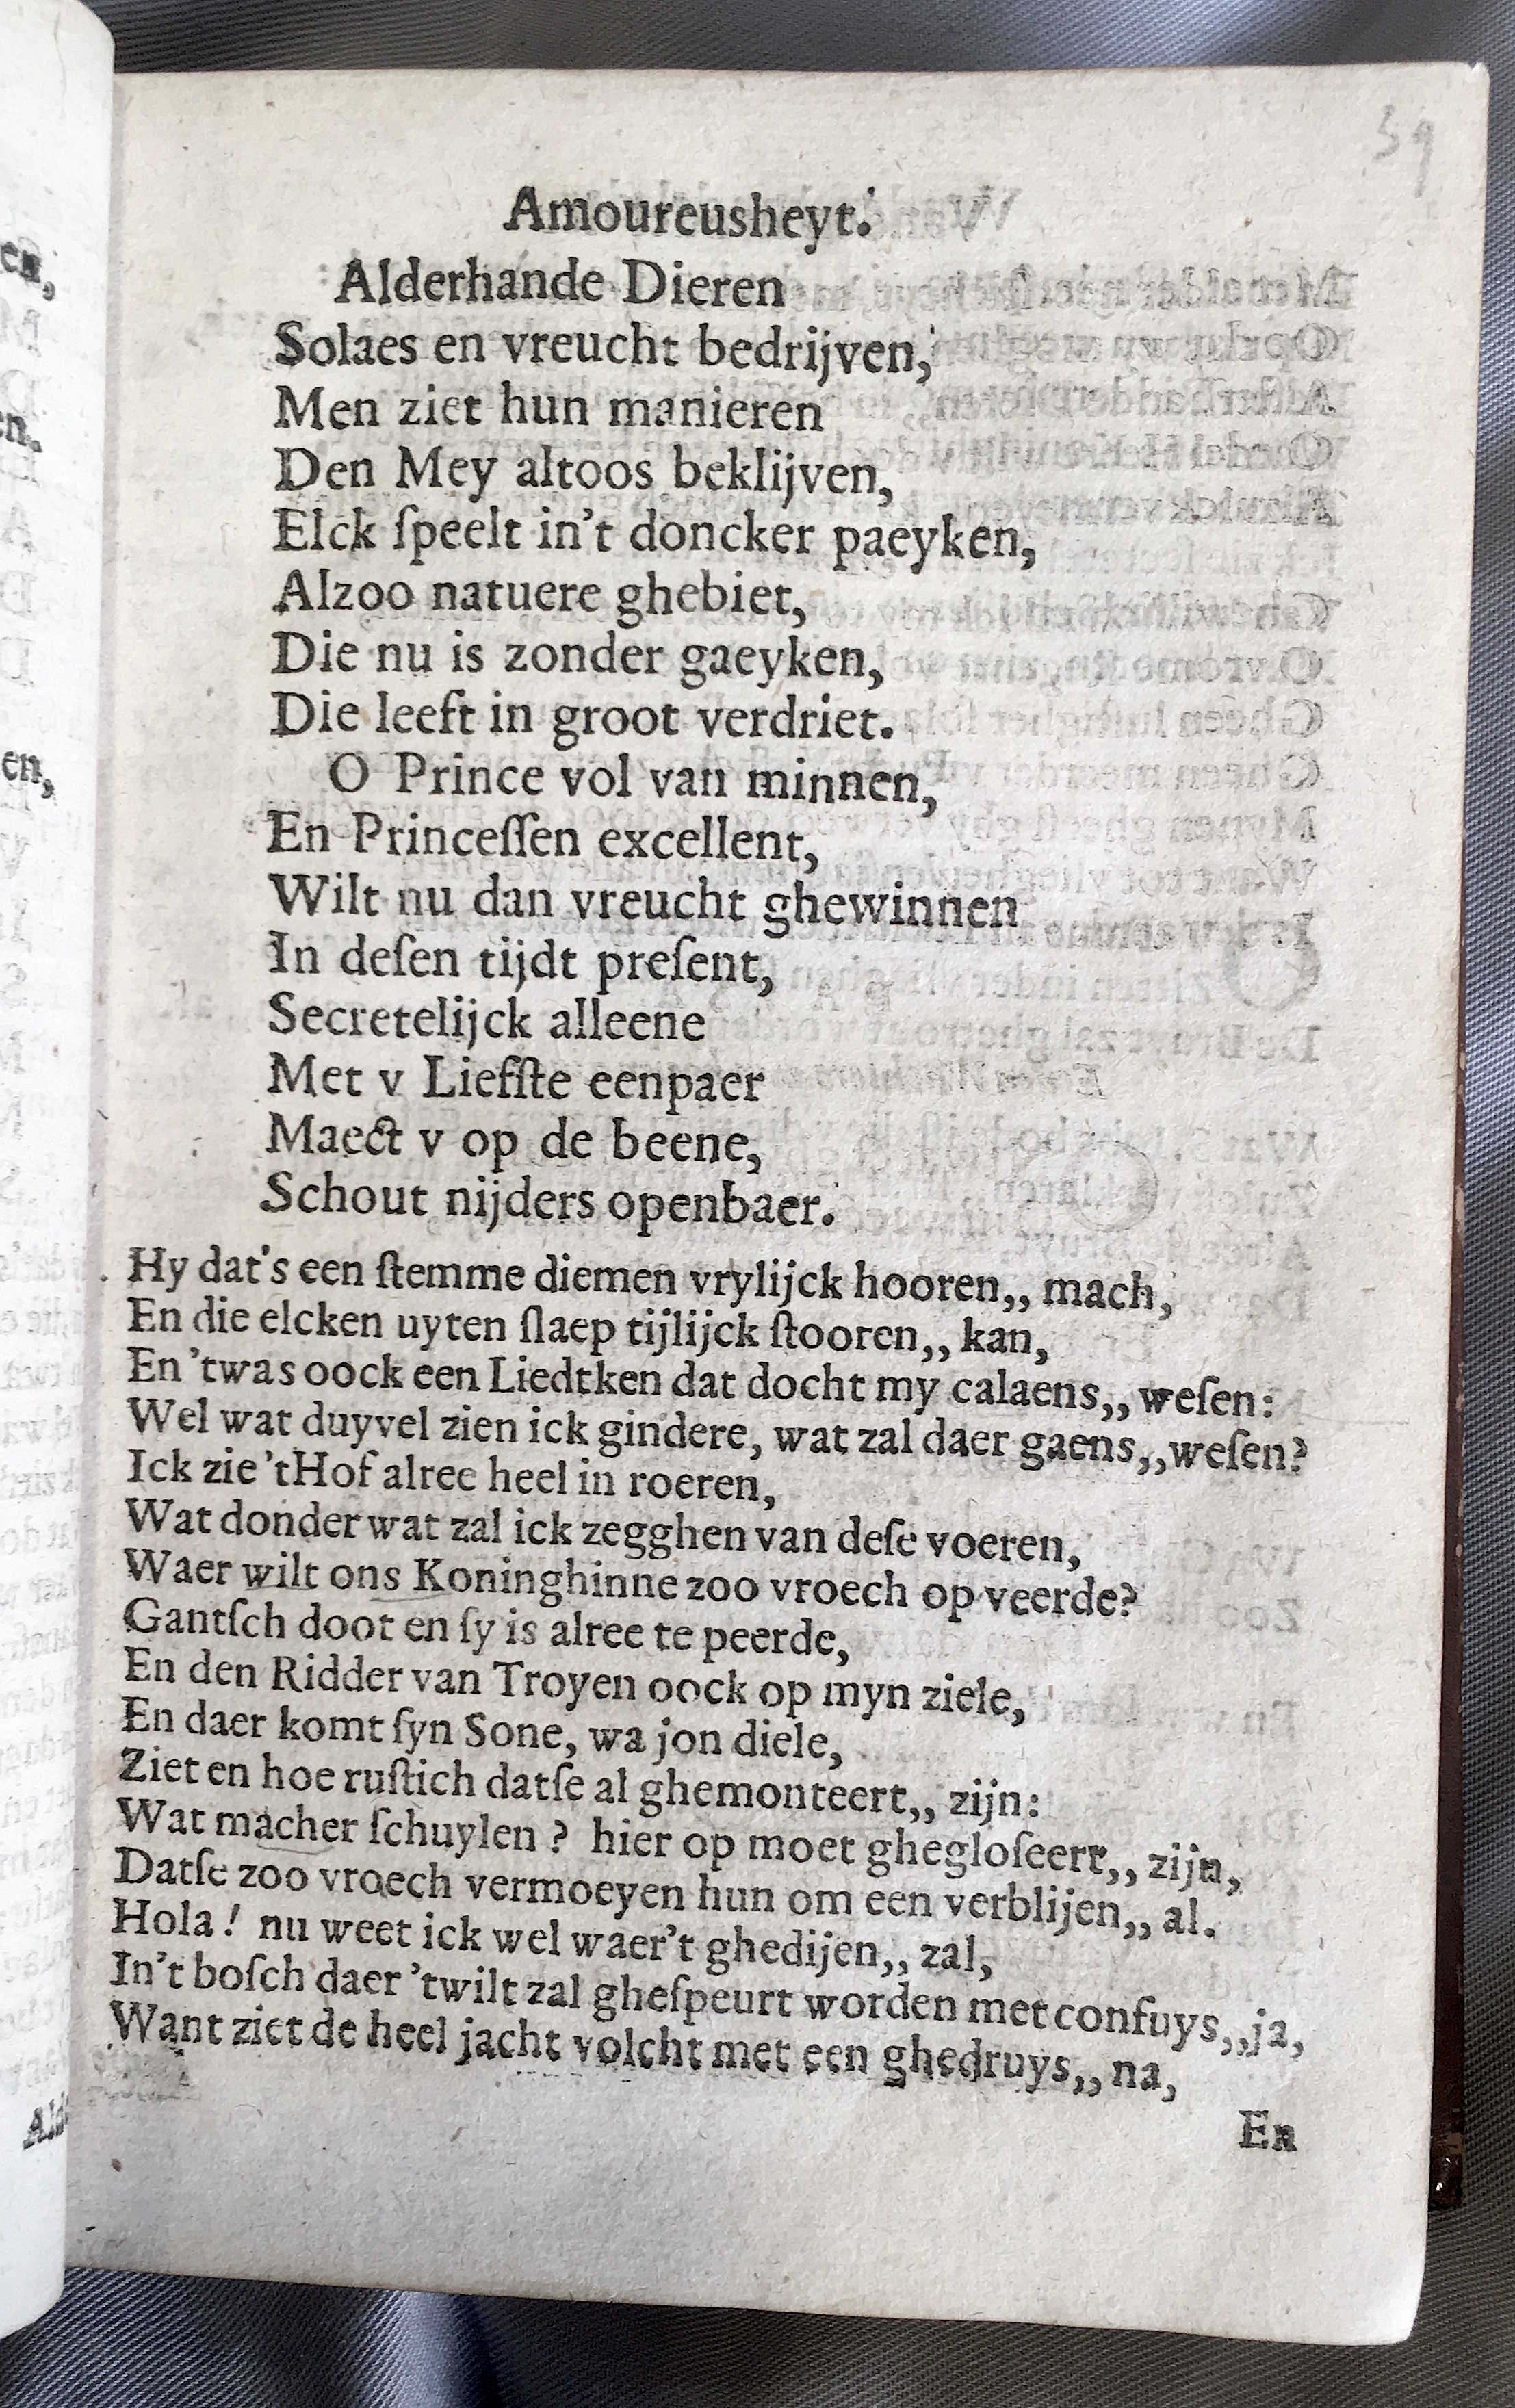 39
Amoureusheyt.
Alderhande Dieren
Solaes en vreucht bedrijven,
Men ziet hun manieren
Den Mey altoos beklijven,
Elck ſpeelt in't doncker paeyken,
Alzoo natuere ghebiet,
Die nu is zonder gaeyken,
Die leeft in groot verdriet.
O Prince vol van minnen,
En Princeſſen excellent,
Wilt nu dan vreucht ghewinnen
In deſen tijdt preſent,
Secretelijck alleene
Met v Liefſte eenpaer
Maect v op de beene,
Schout nijders openbaer.
Hy dat's een ſtemme diemen vrylijck hooren,, mach,
En die elcken uyten ſlaep tijlijck ſtooren,, kan,
En 'twas oock een Liedtken dat docht my calaens,, weſen:
Wel wat duyvel zien ick gindere, wat zal daer gaens,, weſen?
Ick zie 'tHof alree heel in roeren,
Wat donder wat zal ick zegghen van deſe voeren,
Waer wilt ons Koninghinne zoo vroech op veerde?
Gantſch doot en ſy is alree te peerde,
En den Ridder van Troyen oock op myn ziele,
En daer komt ſyn Sone, wa jon diele,
Ziet en hoe ruſtich datſe al ghemonteert,, zijn:
Wat macher ſchuylen? hier op moet ghegloſeert,, zijn,
Datſe zoo vroech vermoeyen hun om een verblijen,, al.
Hola! nu weet ick wel waer't ghedijen,, zal,
In't boſch daer 'twilt zal gheſpeurt worden met confuys,, ja,
Want ziet de heel jacht volcht met een ghedruys,, na,
En